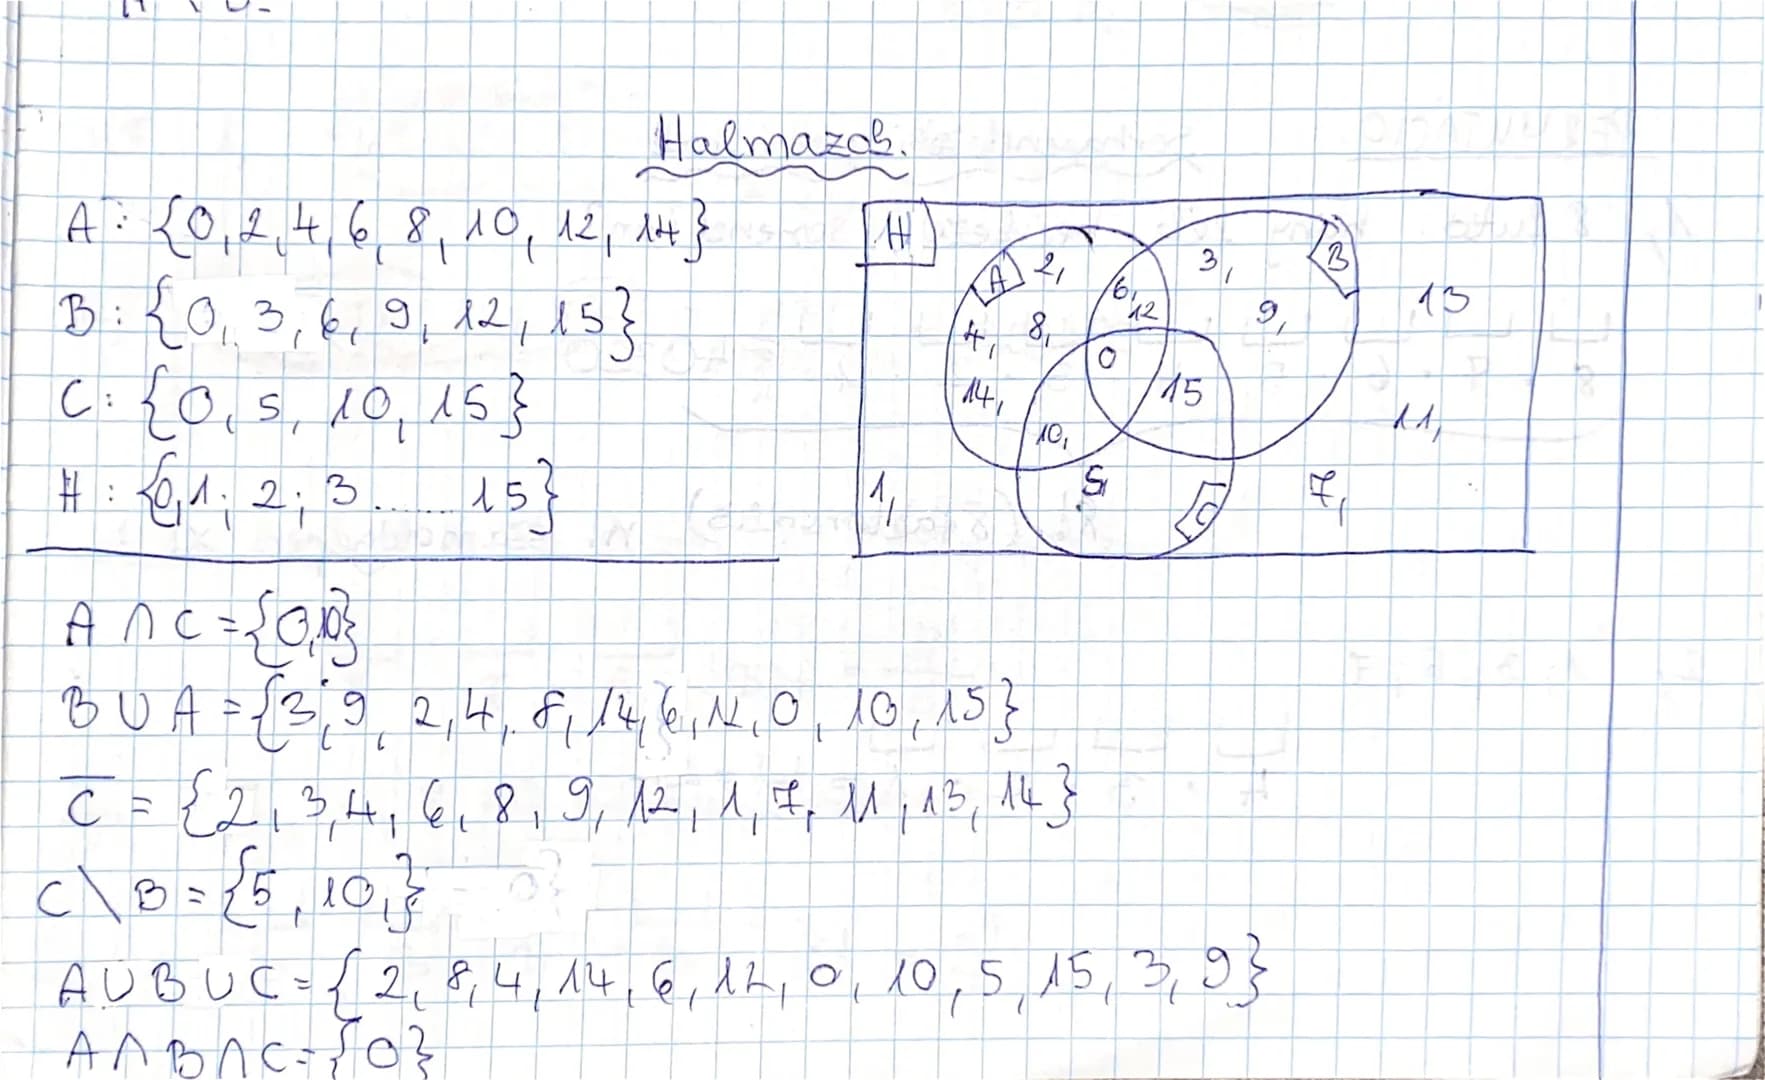 Halmazok.
A: {0, 2, 4, 6, 8, 10, 12, 14}
B: {0, 3, 6, 9, 12, 15}
C: {0, 5, 10, 15}
H: {0, 1; 2; 3 ....... 15}
H
A 2, 3, B
6, 12 13
4, 8, 9,
0
14, 15
10, 11,
1, 5, C 7,
A ∩ C = {0, 10}
B ∪ A = {3, 9, 2, 4, 8, 14, 6, 12, 0, 10, 15}
C̅ = {2, 3, 4, 6, 8, 9, 12, 1, 7, 11, 13, 14}
C \ B = {5, 10,}
A ∪ B ∪ C = {2, 8, 4, 14, 6, 12, 0, 10, 5, 15, 3, 9}
A ∩ B ∩ C = {0}